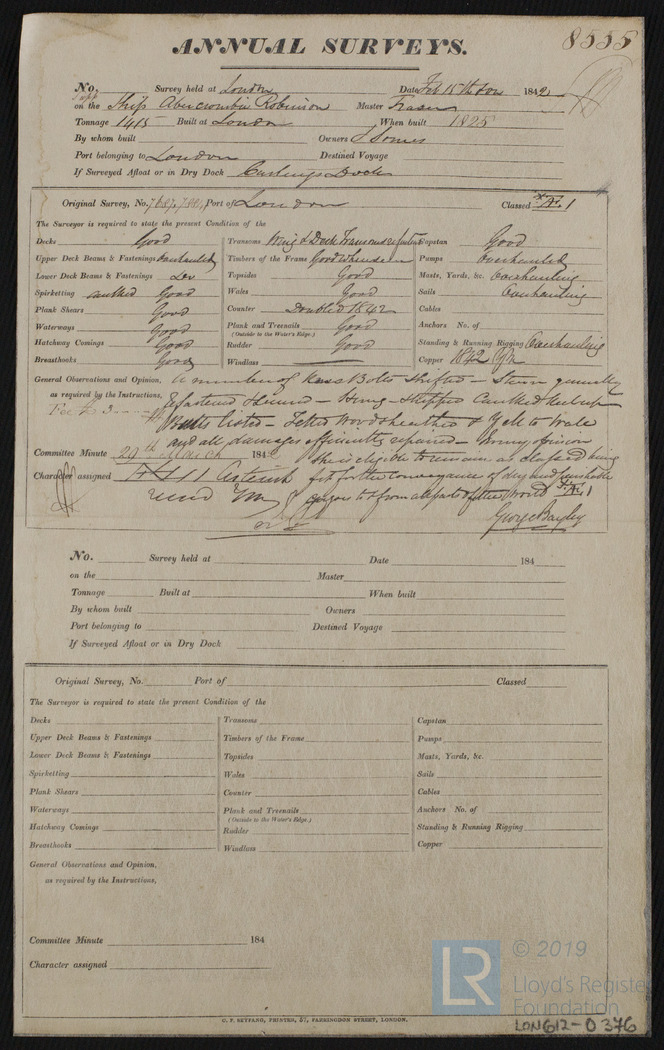 8555
ANNUAL SURVEYS.
No. Survey held at London Date Feb 15th 1842
on the Ship Abercrombie Robinson Master Fraser
Tonnage 1415 Built at London When built 1825
By whom built Owners J Somes
Port belonging to London Destined Voyage
If Surveyed Afloat or in Dry Dock Curlings Dock
Original Survey, No. 7687, Port of London Classed Æ 1
The Surveyor is required to state the present Condition of the
Decks Good Transoms Wing & Deck Transoms Capstan Good
Upper Deck Beams & Fastenings Timbers of the Frame Good where seen Pumps overhauled
Lower Deck Beams & Fastenings Do Topsides Good Masts, Yards, &c. Overhauling
Spirketting caulked Good Wales Good Sails Overhauling
Plank Shears Good Counter Doubled 1842 Cables
Waterways Good Plank and Treenails Good Anchors No. of
(Outside to the Water's Edge.)
Hatchway Comings Good Rudder Good Standing & Running Rigging Overhauling
Breasthooks Good Windlass Copper 1842
General Observations and Opinion, A number of Knee Bolts Shifted – Stern generally
as required by the Instructions, Refastened – Stripped Caulked
Fee £3
Butts listed – Felted Wood sheathed & to Wale
and all damages efficiently repaired – in my opinion
Committee Minute 29th March 1842 she is eligible to remain as classed being
Character assigned Æ 1 Asterisk fit for the conveyance of dry and perishable
cargoes to & from all parts of the World Æ 1
George Bayley
No. Survey held at Date 184
on the Master
Tonnage Built at When built
By whom built Owners
Port belonging to Destined Voyage
If Surveyed Afloat or in Dry Dock
Original Survey, No. Port of Classed
The Surveyor is required to state the present Condition of the
Decks Transoms Capstan
Upper Deck Beams & Fastenings Timbers of the Frame Pumps
Lower Deck Beams & Fastenings Topsides Masts, Yards, &c.
Spirketting Wales Sails
Plank Shears Counter Cables
Waterways Plank and Treenails Anchors No. of
(Outside to the Water's Edge.)
Hatchway Comings Rudder Standing & Running Rigging
Breasthooks Windlass Copper
General Observations and Opinion,
as required by the Instructions,
Committee Minute 184
Character assigned
C. F. SEYFANG, PRINTER, 57, FARRINGDON STREET, LONDON.
LR
© 2019
Lloyd's Register
Foundation
LON612-0376